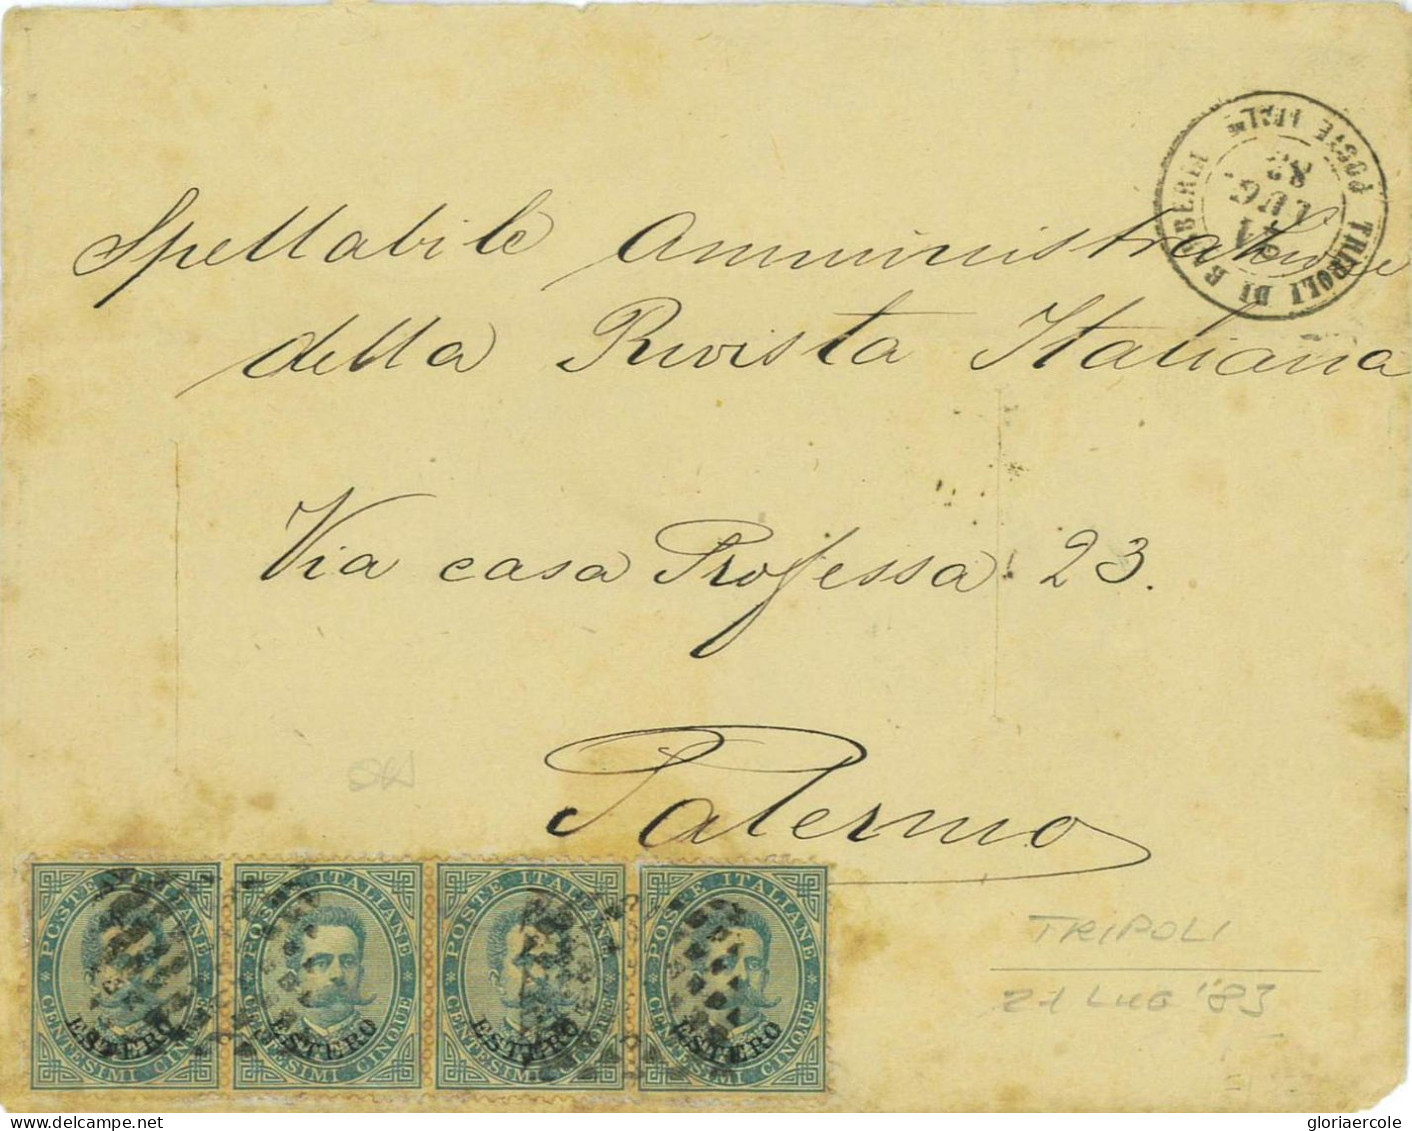 POSTE ITALne
TRIPOLI DI BARBERIA
21
LUG
83
Spettabile Amministrazione
della Rivista Italiana
Via casa Professa 23.
Palermo
POSTE ITALIANE POSTE ITALIANE POSTE ITALIANE POSTE ITALIANE
ESTERO ESTERO ESTERO ESTERO
CENTESIMI CINQUE CENTESIMI CINQUE CENTESIMI CINQUE CENTESIMI CINQUE
TRIPOLI
21 LUG '83
gloriaercole